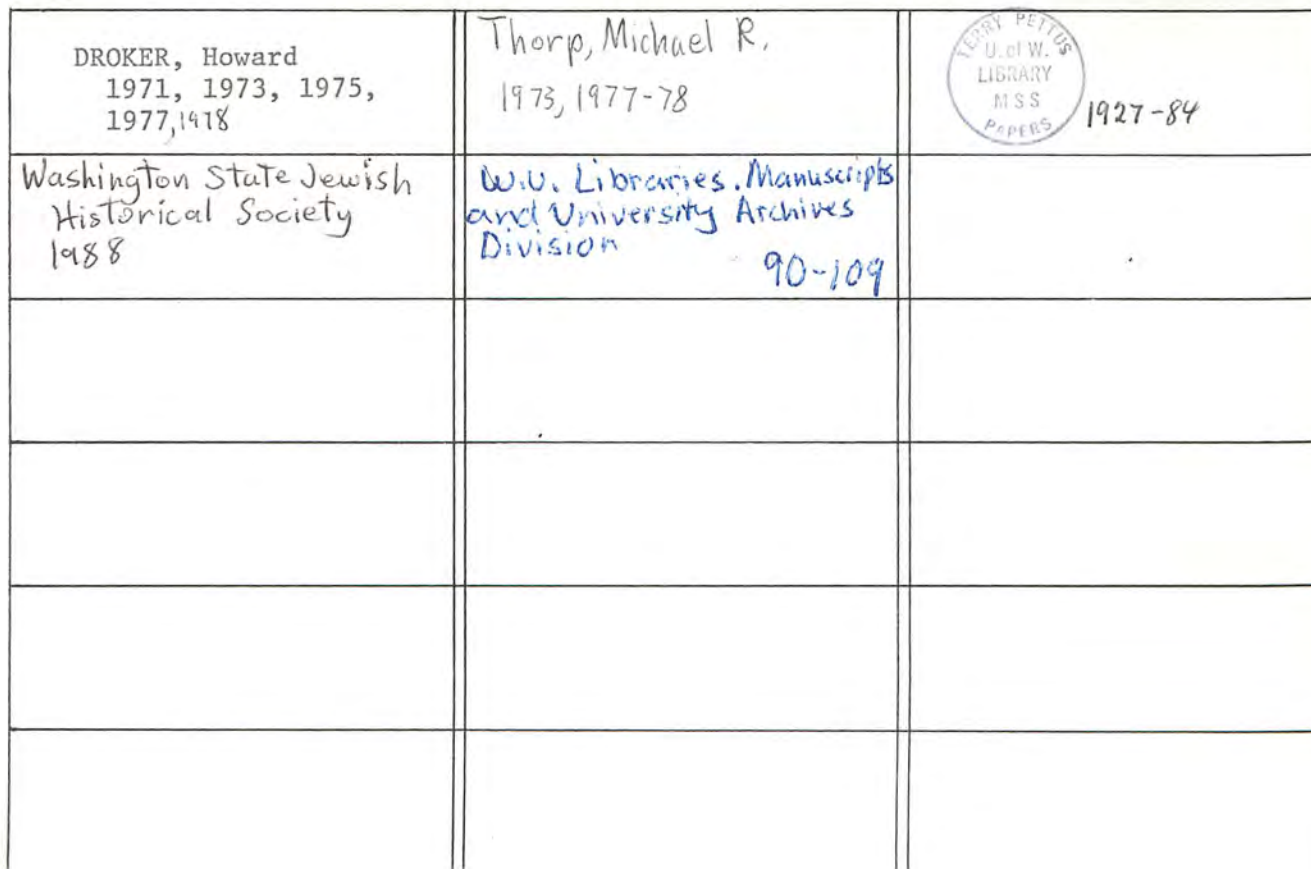 DROKER, Howard
1971, 1973, 1975,
1977, 1978
Thorp, Michael R.
1973, 1977-78
TERRY PETTUS
U. of W.
LIBRARY
MSS
PAPERS
1927-84
Washington State Jewish
Historical Society
1988
W.U. Libraries. Manuscripts
and University Archives
Division
90-109